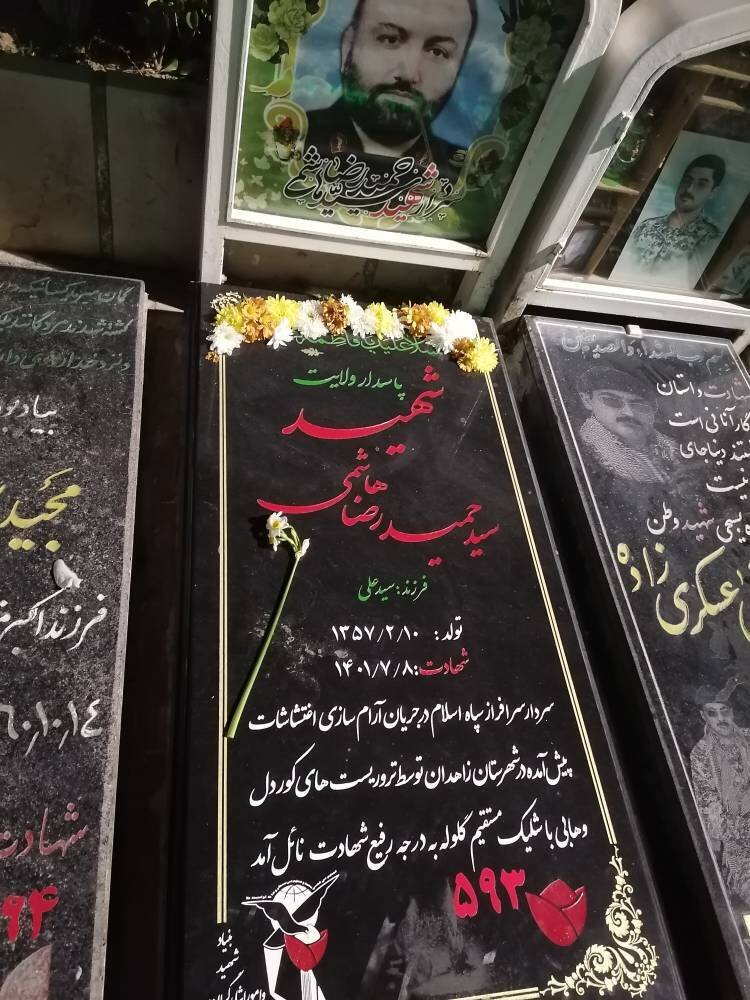 سردار شهید
سید حمیدرضا هاشمی
السلام علیک یا فاطمه
پاسدار ولایت
شهید
سید حمید رضا هاشمی
فرزند : سید علی
تولد : ۱۳۵۷/۲/۱۰
شهادت : ۱۴۰۱/۷/۸
سردار سرافراز سپاه اسلام در جریان آرام سازی اغتشاشات
پیش آمده در شهرستان زاهدان توسط تروریست های کوردل
وهابی با شلیک مستقیم گلوله به درجه رفیع شهادت نائل آمد
۵۹۳
بنیاد
شهید
و امور ایثارگران
مجید
فرزند اکبر
۶۰٫۱۰٫۱۴
شهادت
داستان
کار آنانی است
نیست
شهید وطن
عسکری زاده